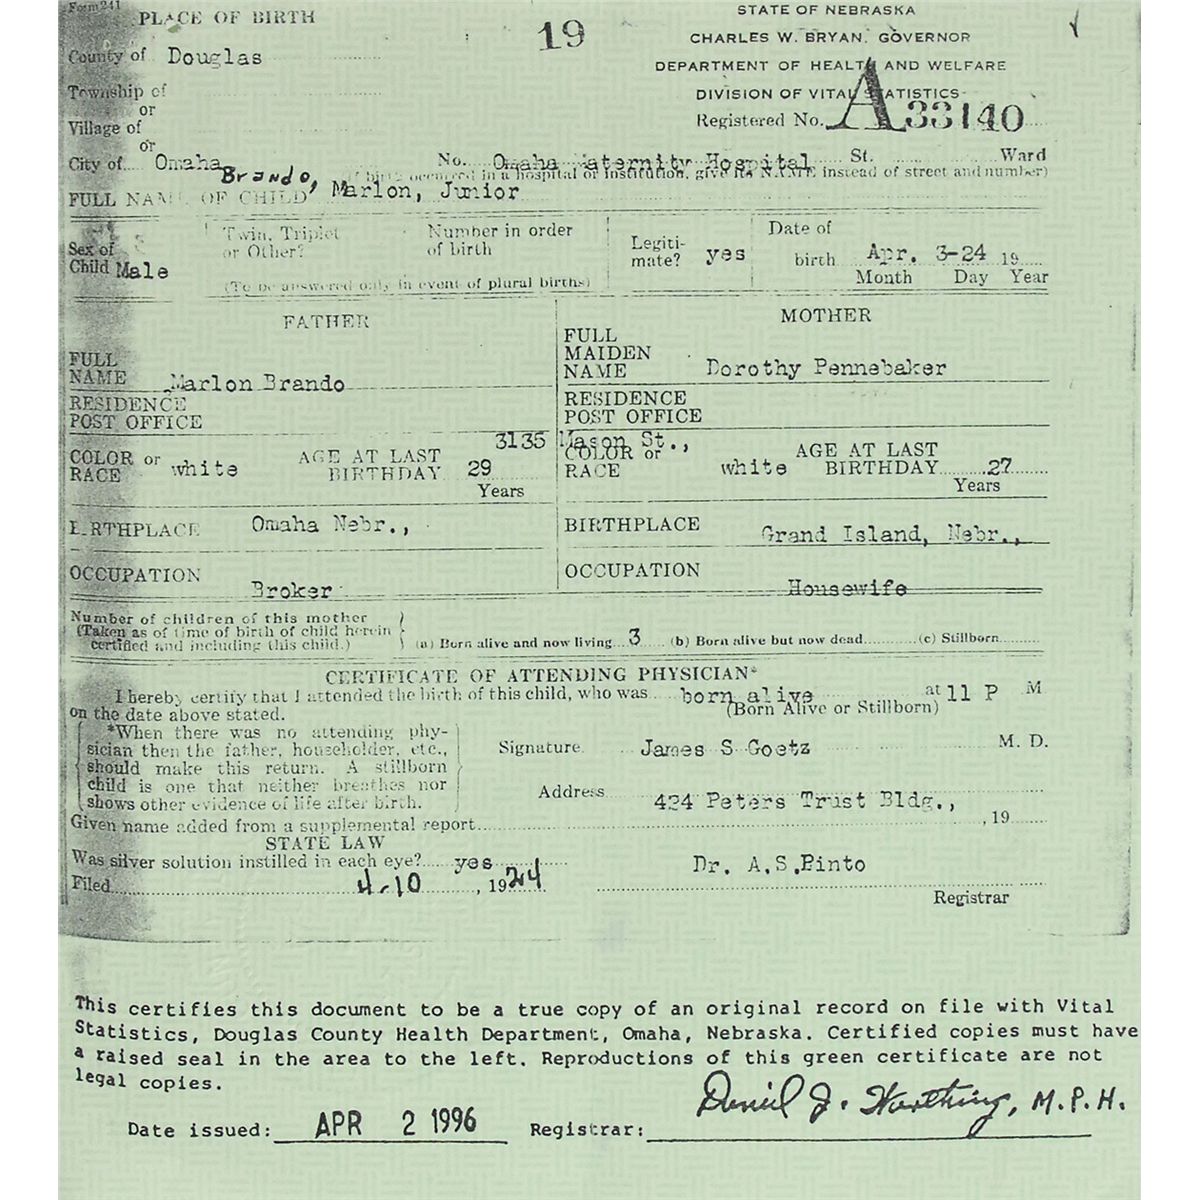 Form 241
PLACE OF BIRTH
19
STATE OF NEBRASKA
CHARLES W. BRYAN, GOVERNOR
DEPARTMENT OF HEALTH AND WELFARE
DIVISION OF VITAL STATISTICS
Registered No. A 33140
County of Douglas
Township of
or
Village of
or
City of Omaha No. Omaha Maternity Hospital St. Ward
(If birth occurred in a hospital or institution, give its NAME instead of street and number)
FULL NAME OF CHILD Brando, Marlon, Junior
Sex of Child Male
Twin, Triplet or Other?
Number in order of birth
(To be answered only in event of plural births)
Legiti-
mate? yes
Date of
birth Apr. 3-24 19
Month Day Year
FATHER
FULL
NAME Marlon Brando
RESIDENCE
POST OFFICE
MOTHER
FULL
MAIDEN
NAME Dorothy Pennebaker
RESIDENCE
POST OFFICE
3135 Mason St.,
COLOR or
RACE white
AGE AT LAST
BIRTHDAY 29
Years
COLOR or
RACE white
AGE AT LAST
BIRTHDAY 27
Years
BIRTHPLACE Omaha Nebr.,
BIRTHPLACE Grand Island, Nebr.,
OCCUPATION Broker
OCCUPATION Housewife
Number of children of this mother
(Taken as of time of birth of child herein
certified and including this child.)
(a) Born alive and now living 3 (b) Born alive but now dead (c) Stillborn
CERTIFICATE OF ATTENDING PHYSICIAN*
I hereby certify that I attended the birth of this child, who was born alive at 11 P M
(Born Alive or Stillborn)
on the date above stated.
*When there was no attending phy-
sician then the father, householder, etc.,
should make this return. A stillborn
child is one that neither breathes nor
shows other evidence of life after birth.
Signature James S Goetz M. D.
Address 424 Peters Trust Bldg.,
Given name added from a supplemental report , 19
STATE LAW
Was silver solution instilled in each eye? yes
Dr. A.S.Pinto
Filed 4-10, 1924
Registrar
This certifies this document to be a true copy of an original record on file with Vital
Statistics, Douglas County Health Department, Omaha, Nebraska. Certified copies must have
a raised seal in the area to the left. Reproductions of this green certificate are not
legal copies.
Date issued: APR 2 1996 Registrar: Daniel J. Worthing, M.P.H.